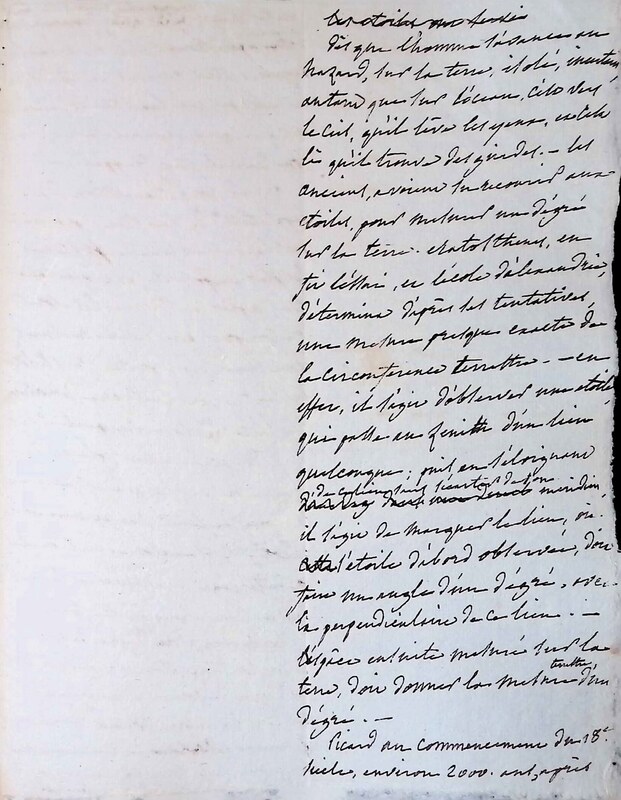 les étoiles nos
Dès que l'homme s'avance au
hazard, sur la terre, isolé, incertain,
autant que sur l'océan, c'est vers
le ciel, qu'il lève les yeux, c'est
là qu'il trouve des guides. — les
anciens, avoient su recourir aux
étoiles, pour mesurer un dégré
sur la terre. eratosthenes, en
fit l'éssai, et l'école d'alexandrie,
détermina d'après ses tentatives,
une mesure presque exacte de
la circonférence terrestre. — en
effet, il s'agit d'observer une étoile
qui passe au zenith d'un lieu
quelconque ; puis en s'éloignant
de ce lieu sans s'écarter de son
méridien
il s'agit de marquer le lieu, où
l'étoile d'abord observée, doit
faire un angle d'un dégré, avec
la perpendiculaire de ce lieu. —
l'éspace ensuite mesuré sur la
terrestre
terre, doit donner la mesure d'un
dégré. —
Picard au commencement du 18e
siècle, environ 2000. ans, après